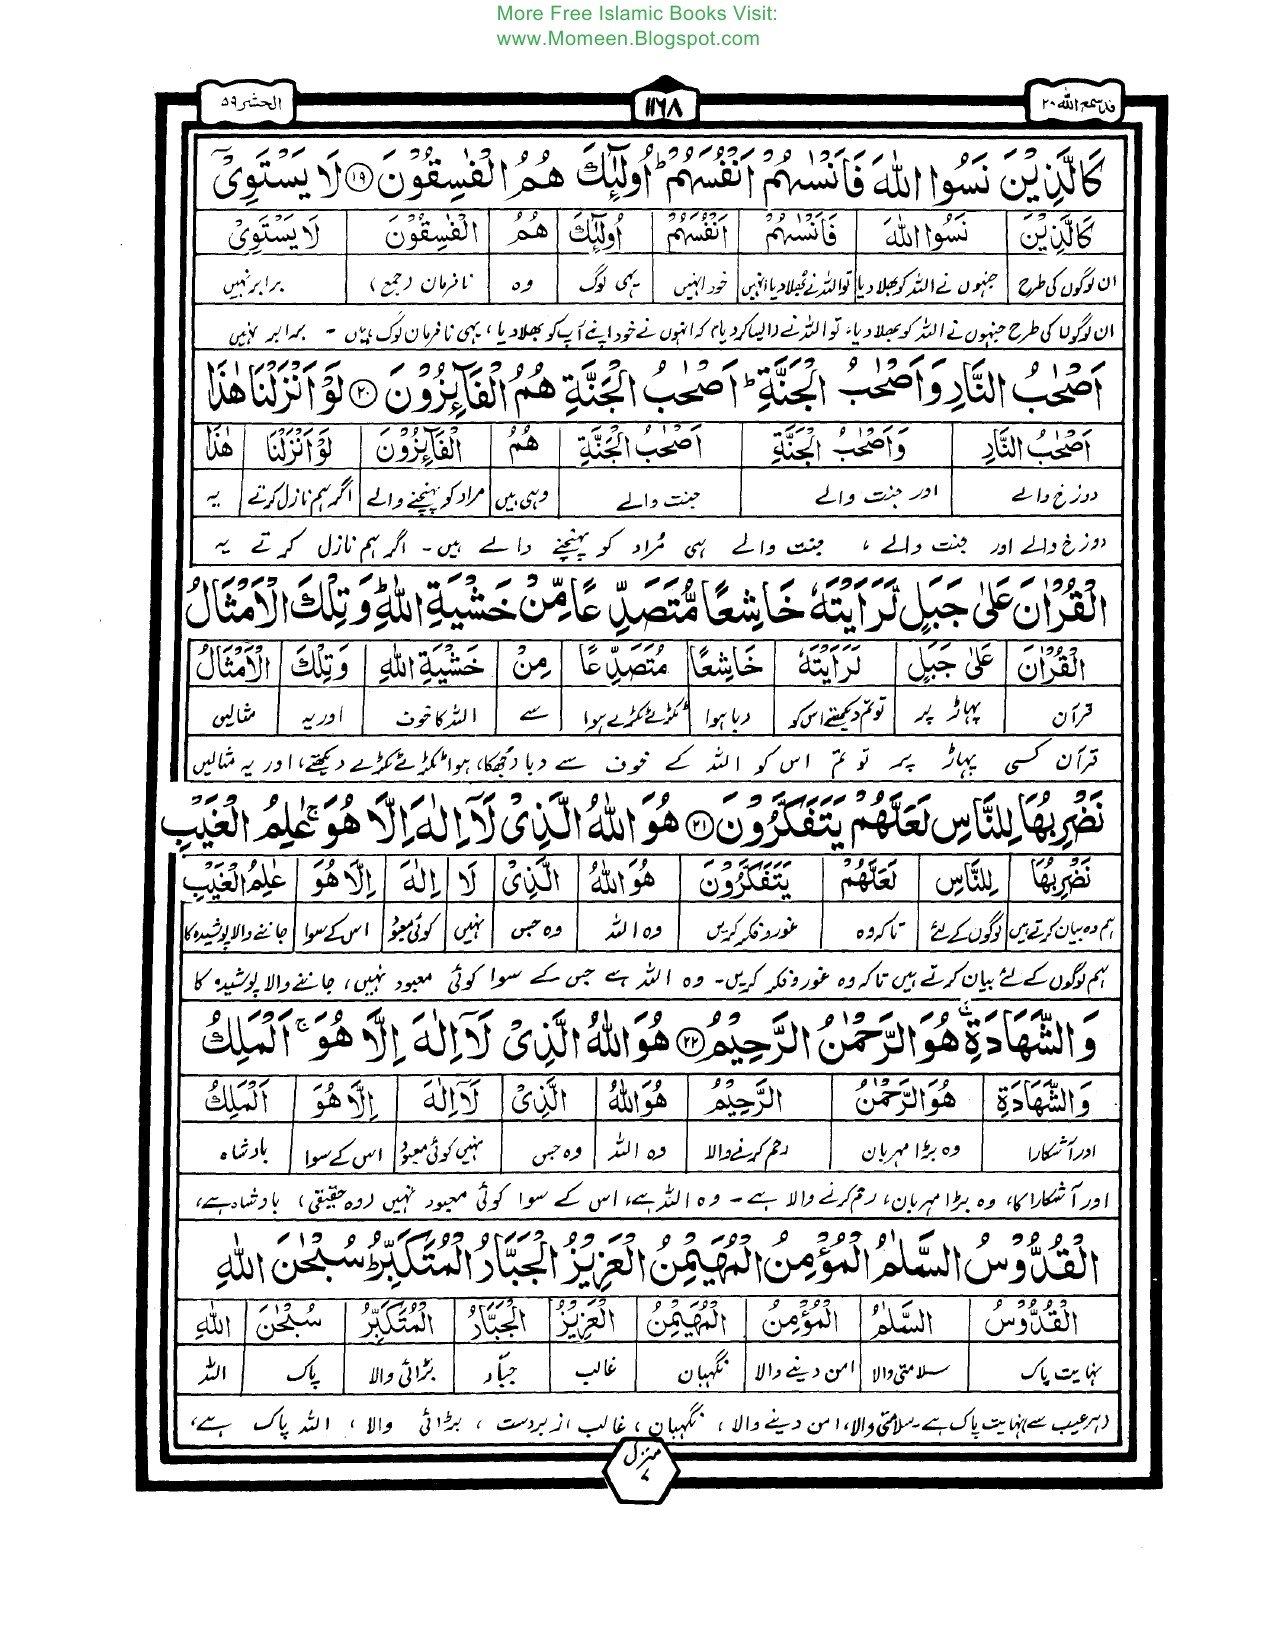 More Free Islamic Books Visit:
www.Momeen.Blogspot.com
قد سمع الله ۲۸ ۱۱۶۸ الحشر ۵۹
كَالَّذِيْنَ نَسُوا اللّٰهَ فَاَنْسٰىهُمْ اَنْفُسَهُمْ ؕ اُولٰٓئِكَ هُمُ الْفٰسِقُوْنَ ﴿۱۹﴾ لَا يَسْتَوِيْٓ
كَالَّذِيْنَ نَسُوا اللّٰهَ فَاَنْسٰىهُمْ اَنْفُسَهُمْ اُولٰٓئِكَ هُمُ الْفٰسِقُوْنَ لَا يَسْتَوِيْٓ
ان لوگوں کی طرح جنہوں نے اللہ کو بھلا دیا تو اللہ نے بھلا دیا انہیں خود انہیں یہی لوگ وہ نافرمان (جمع) برابر نہیں
ان لوگوں کی طرح جنہوں نے اللہ کو بھلا دیا، تو اللہ نے (ایسا کر دیا) کہ انہوں نے خود اپنے آپ کو بھلا دیا، یہی نافرمان لوگ ہیں - برابر نہیں
اَصْحٰبُ النَّارِ وَاَصْحٰبُ الْجَنَّةِ ؕ اَصْحٰبُ الْجَنَّةِ هُمُ الْفَآئِزُوْنَ ﴿۲۰﴾ لَوْ اَنْزَلْنَا هٰذَا
اَصْحٰبُ النَّارِ وَاَصْحٰبُ الْجَنَّةِ اَصْحٰبُ الْجَنَّةِ هُمُ الْفَآئِزُوْنَ لَوْ اَنْزَلْنَا هٰذَا
دوزخ والے اور جنت والے جنت والے وہی ہیں مراد کو پہنچنے والے اگر ہم نازل کرتے یہ
دوزخ والے اور جنت والے ، جنت والے ہی مُراد کو پہنچنے والے ہیں - اگر ہم نازل کرتے یہ
الْقُرْاٰنَ عَلٰى جَبَلٍ لَّرَاَيْتَهٗ خَاشِعًا مُّتَصَدِّعًا مِّنْ خَشْيَةِ اللّٰهِ ؕ وَتِلْكَ الْاَمْثَالُ
الْقُرْاٰنَ عَلٰى جَبَلٍ لَّرَاَيْتَهٗ خَاشِعًا مُتَصَدِّعًا مِنْ خَشْيَةِ اللّٰهِ وَتِلْكَ الْاَمْثَالُ
قرآن پہاڑ پر تو تم دیکھتے اس کو دبا ہوا ٹکڑے ٹکڑے ہوا سے اللہ کا خوف اور یہ مثالیں
قرآن کسی پہاڑ پر تو تم اس کو اللہ کے خوف سے دبا (جھکا) ہوا ٹکڑے ٹکڑے دیکھتے، اور یہ مثالیں
نَضْرِبُهَا لِلنَّاسِ لَعَلَّهُمْ يَتَفَكَّرُوْنَ ﴿۲۱﴾ هُوَ اللّٰهُ الَّذِيْ لَآ اِلٰهَ اِلَّا هُوَ ۚ عٰلِمُ الْغَيْبِ
نَضْرِبُهَا لِلنَّاسِ لَعَلَّهُمْ يَتَفَكَّرُوْنَ هُوَ اللّٰهُ الَّذِيْ لَا اِلٰهَ اِلَّا هُوَ عٰلِمُ الْغَيْبِ
ہم وہ بیان کرتے ہیں لوگوں کے لئے تاکہ وہ غور و فکر کریں وہ اللہ وہ جس نہیں کوئی معبود اس کے سوا جاننے والا پوشیدہ کا
ہم لوگوں کے لئے بیان کرتے ہیں تاکہ وہ غور و فکر کریں۔ وہ اللہ ہے جس کے سوا کوئی معبود نہیں، جاننے والا پوشیدہ کا
وَالشَّهَادَةِ ۚ هُوَ الرَّحْمٰنُ الرَّحِيْمُ ﴿۲۲﴾ هُوَ اللّٰهُ الَّذِيْ لَآ اِلٰهَ اِلَّا هُوَ ۚ اَلْمَلِكُ
وَالشَّهَادَةِ هُوَ الرَّحْمٰنُ الرَّحِيْمُ هُوَ اللّٰهُ الَّذِيْ لَآ اِلٰهَ اِلَّا هُوَ اَلْمَلِكُ
اور آشکارا وہ بڑا مہربان رحم کرنے والا وہ اللہ وہ جس نہیں کوئی معبود اس کے سوا بادشاہ
اور آشکارا کا، وہ بڑا مہربان، رحم کرنے والا ہے - وہ اللہ ہے، اس کے سوا کوئی معبود نہیں (وہ حقیقی) بادشاہ ہے،
الْقُدُّوْسُ السَّلٰمُ الْمُؤْمِنُ الْمُهَيْمِنُ الْعَزِيْزُ الْجَبَّارُ الْمُتَكَبِّرُ ؕ سُبْحٰنَ اللّٰهِ
الْقُدُّوْسُ السَّلٰمُ الْمُؤْمِنُ الْمُهَيْمِنُ الْعَزِيْزُ الْجَبَّارُ الْمُتَكَبِّرُ سُبْحٰنَ اللّٰهِ
نہایت پاک سلامتی والا امن دینے والا نگہبان غالب جبّار بڑائی والا پاک اللہ
(ہر عیب سے) نہایت پاک ہے۔ سلامتی والا، امن دینے والا ، نگہبان ، غالب ، زبردست ، بڑائی والا ، اللہ پاک ہے،
منزل ۷